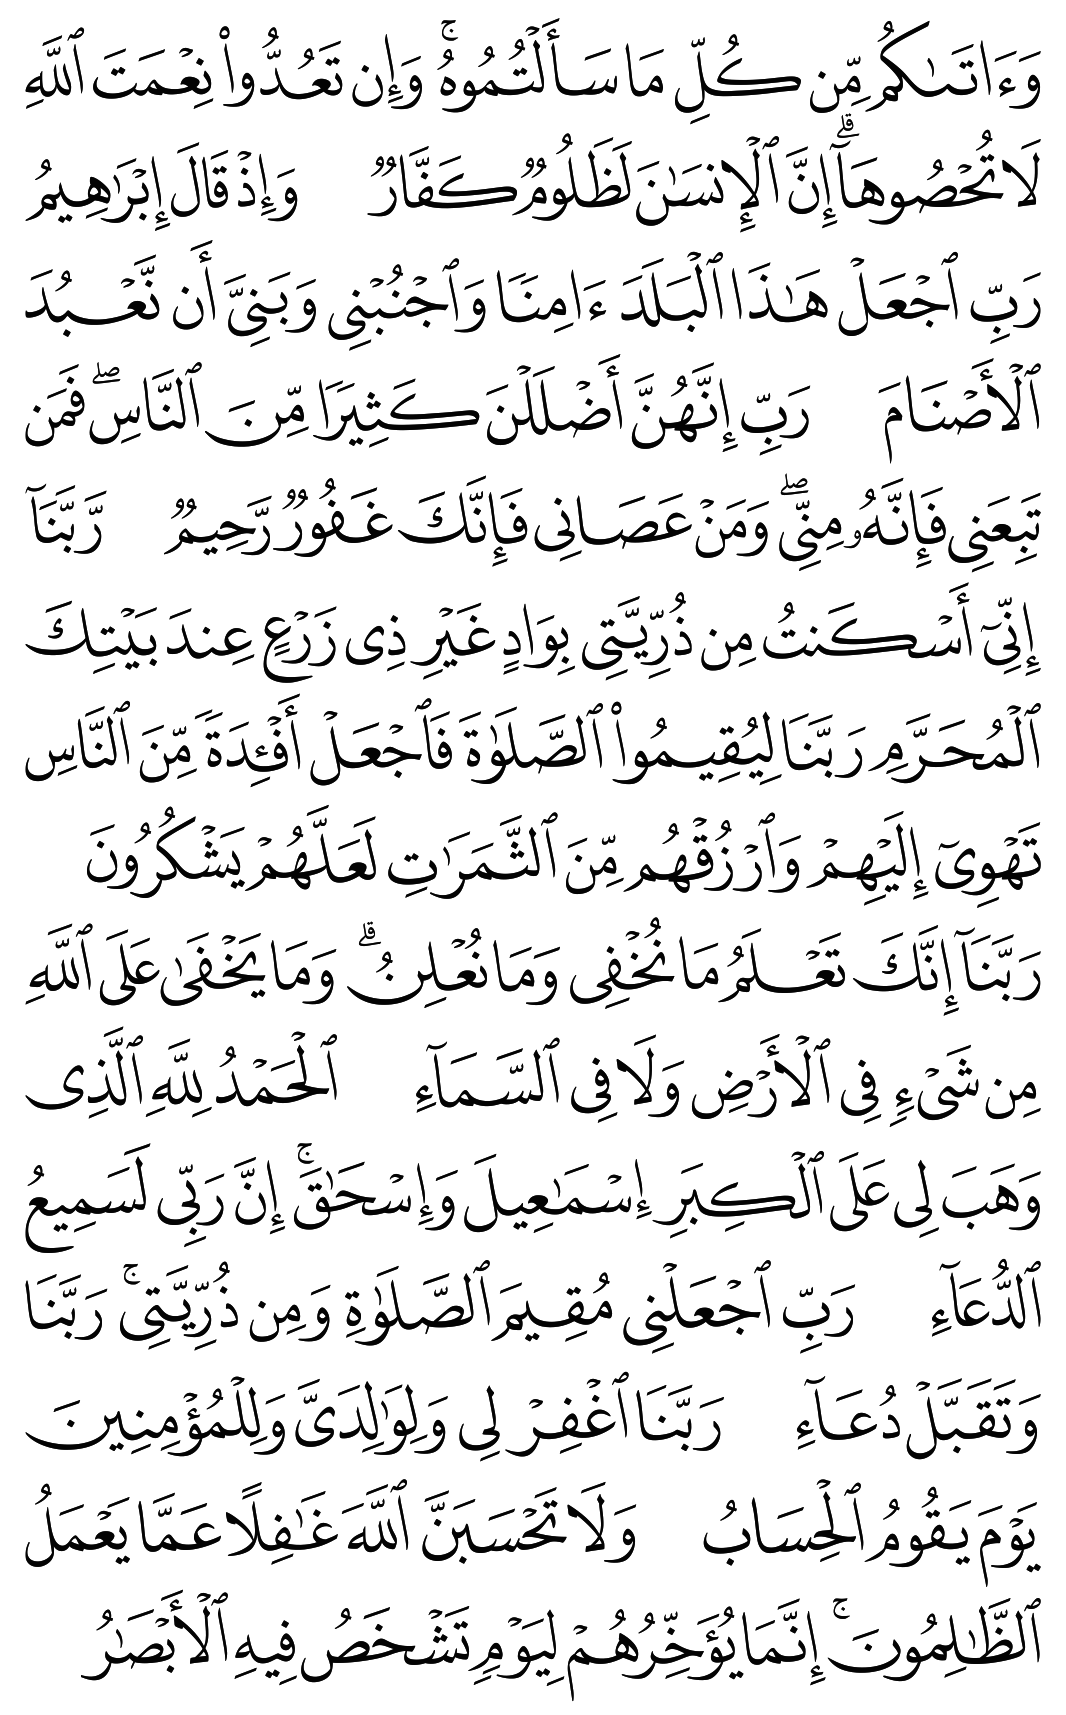 وَءَاتَىٰكُم مِّن كُلِّ مَا سَأَلْتُمُوهُۚ وَإِن تَعُدُّوا۟ نِعْمَتَ ٱللَّهِ
لَا تُحْصُوهَآۗ إِنَّ ٱلْإِنسَـٰنَ لَظَلُومٌ كَفَّارٌ وَإِذْ قَالَ إِبْرَٰهِيمُ
رَبِّ ٱجْعَلْ هَـٰذَا ٱلْبَلَدَ ءَامِنًا وَٱجْنُبْنِى وَبَنِىَّ أَن نَّعْبُدَ
ٱلْأَصْنَامَ رَبِّ إِنَّهُنَّ أَضْلَلْنَ كَثِيرًا مِّنَ ٱلنَّاسِۖ فَمَن
تَبِعَنِى فَإِنَّهُۥ مِنِّىۖ وَمَنْ عَصَانِى فَإِنَّكَ غَفُورٌ رَّحِيمٌ رَّبَّنَآ
إِنِّىٓ أَسْكَنتُ مِن ذُرِّيَّتِى بِوَادٍ غَيْرِ ذِى زَرْعٍ عِندَ بَيْتِكَ
ٱلْمُحَرَّمِ رَبَّنَا لِيُقِيمُوا۟ ٱلصَّلَوٰةَ فَٱجْعَلْ أَفْـِٔدَةً مِّنَ ٱلنَّاسِ
تَهْوِىٓ إِلَيْهِمْ وَٱرْزُقْهُم مِّنَ ٱلثَّمَرَٰتِ لَعَلَّهُمْ يَشْكُرُونَ
رَبَّنَآ إِنَّكَ تَعْلَمُ مَا نُخْفِى وَمَا نُعْلِنُۗ وَمَا يَخْفَىٰ عَلَى ٱللَّهِ
مِن شَىْءٍ فِى ٱلْأَرْضِ وَلَا فِى ٱلسَّمَآءِ ٱلْحَمْدُ لِلَّهِ ٱلَّذِى
وَهَبَ لِى عَلَى ٱلْكِبَرِ إِسْمَـٰعِيلَ وَإِسْحَـٰقَۚ إِنَّ رَبِّى لَسَمِيعُ
ٱلدُّعَآءِ رَبِّ ٱجْعَلْنِى مُقِيمَ ٱلصَّلَوٰةِ وَمِن ذُرِّيَّتِىۚ رَبَّنَا
وَتَقَبَّلْ دُعَآءِ رَبَّنَا ٱغْفِرْ لِى وَلِوَٰلِدَىَّ وَلِلْمُؤْمِنِينَ
يَوْمَ يَقُومُ ٱلْحِسَابُ وَلَا تَحْسَبَنَّ ٱللَّهَ غَـٰفِلًا عَمَّا يَعْمَلُ
ٱلظَّـٰلِمُونَۚ إِنَّمَا يُؤَخِّرُهُمْ لِيَوْمٍ تَشْخَصُ فِيهِ ٱلْأَبْصَـٰرُ